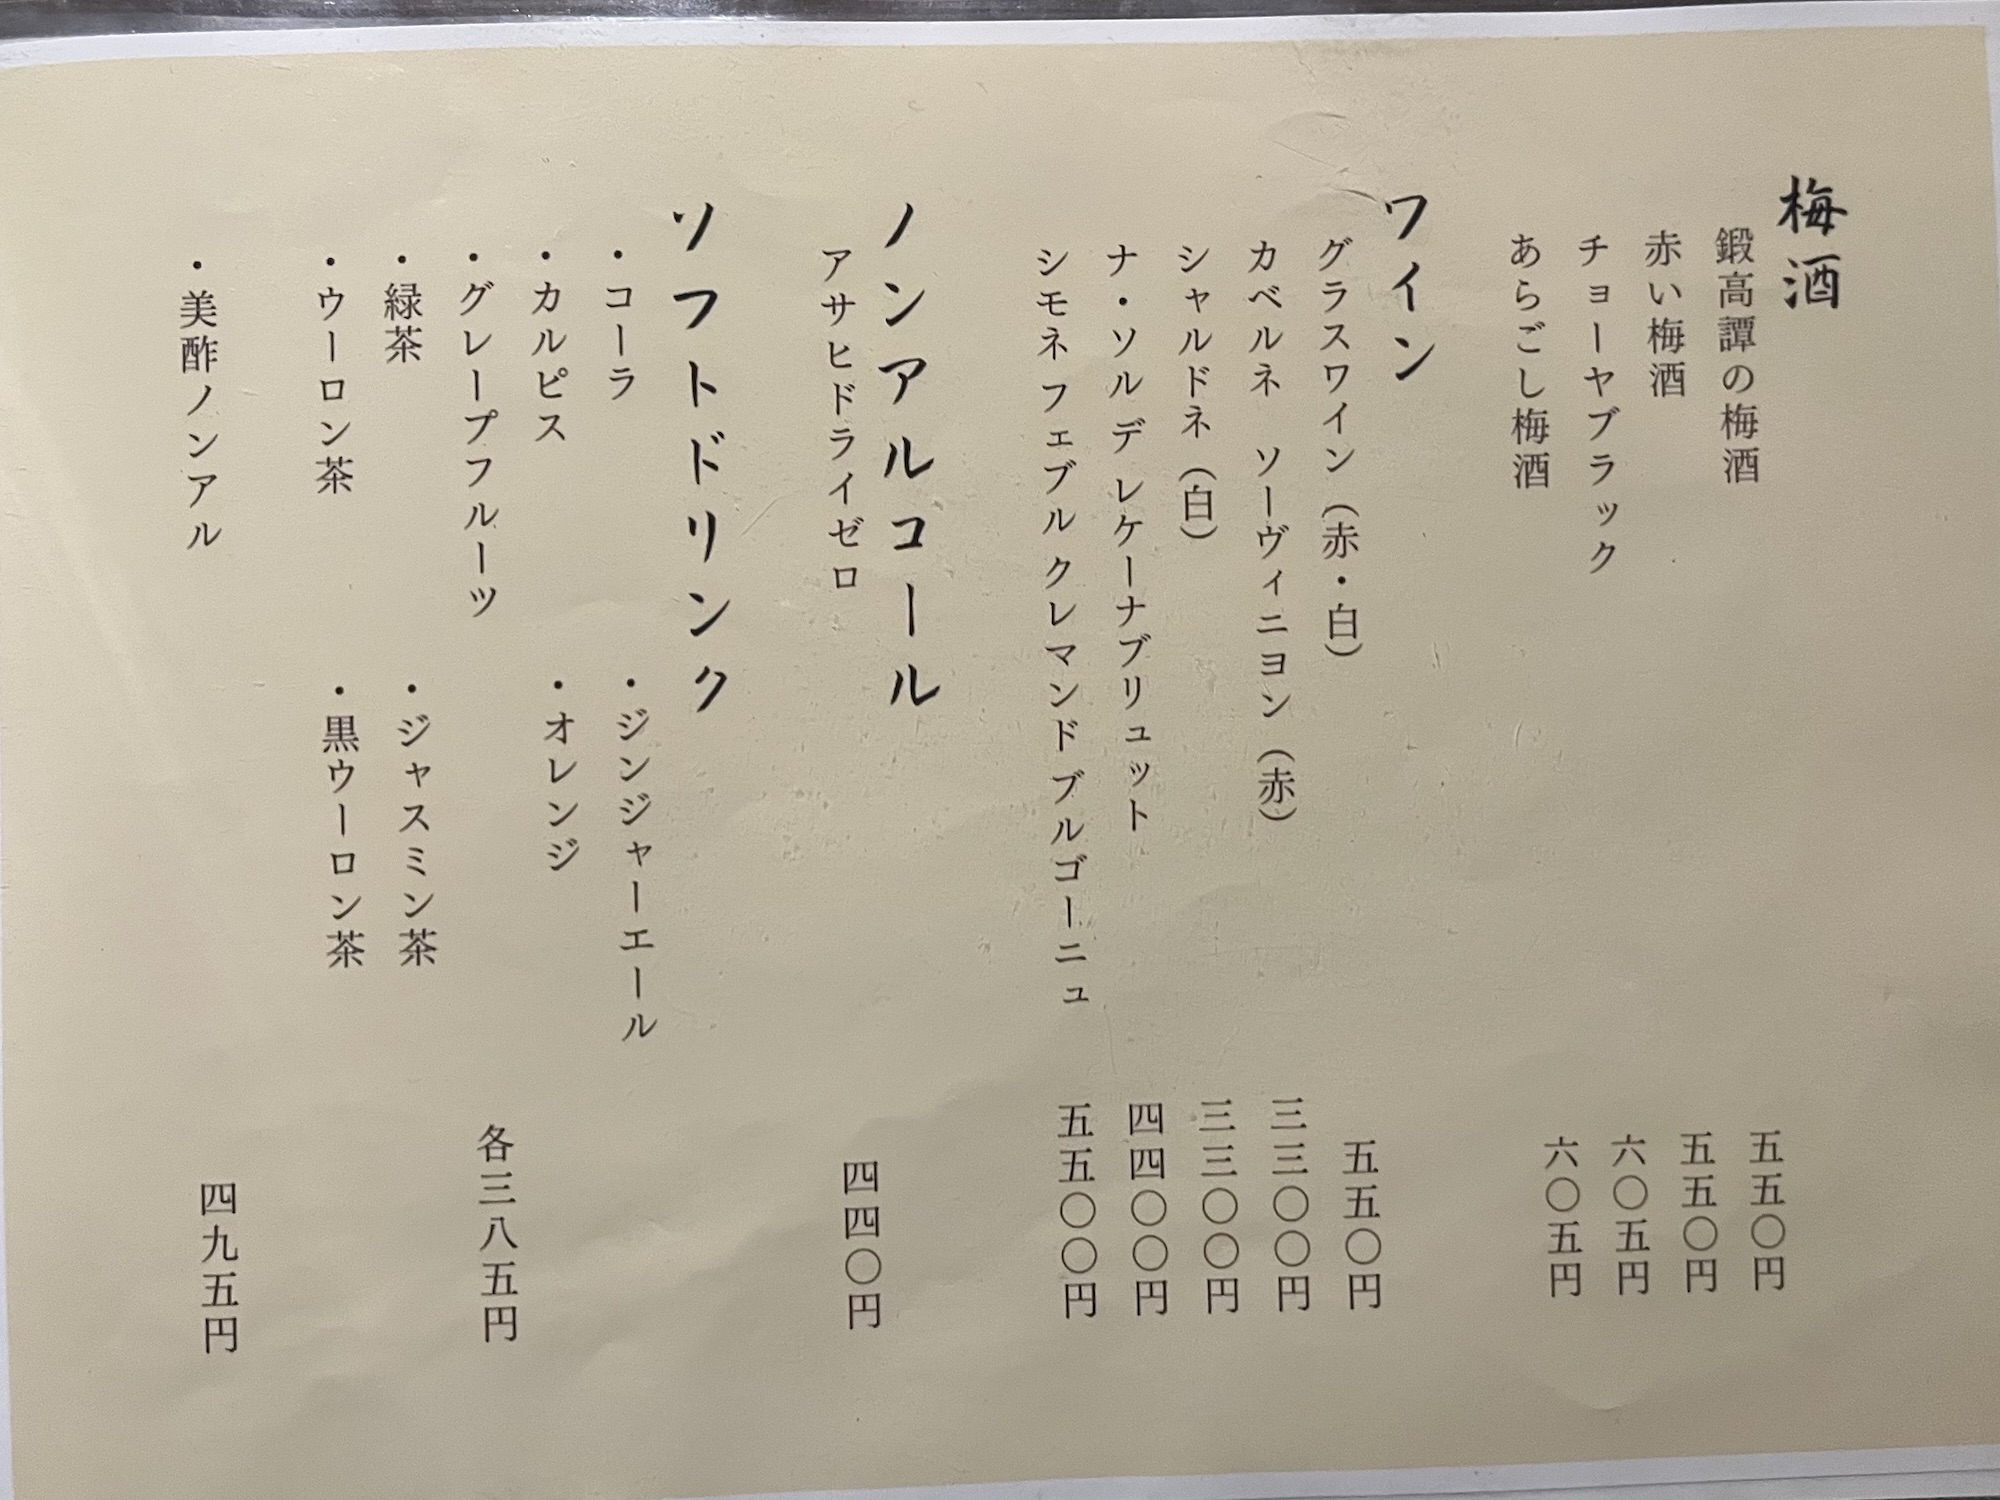 梅酒
鍛高譚の梅酒 五五〇円
赤い梅酒 五五〇円
チョーヤブラック 六〇五円
あらごし梅酒 六〇五円
ワイン
グラスワイン（赤・白） 五五〇円
カベルネ ソーヴィニヨン（赤） 三三〇〇円
シャルドネ（白） 三三〇〇円
ナ・ソル デ レケーナブリュット 四四〇〇円
シモネ フェブル クレマンド ブルゴーニュ 五五〇〇円
ノンアルコール
アサヒドライゼロ 四四〇円
ソフトドリンク
・コーラ ・ジンジャーエール
・カルピス ・オレンジ
・グレープフルーツ 各三八五円
・緑茶 ・ジャスミン茶
・ウーロン茶 ・黒ウーロン茶
・美酢ノンアル 四九五円